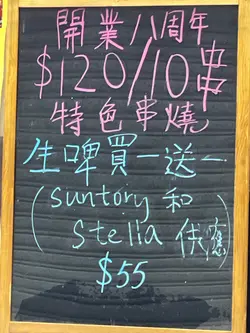 開業八周年
$120/10串
特色串燒
生啤買一送一
(Suntory和
Stella 供應)
$55